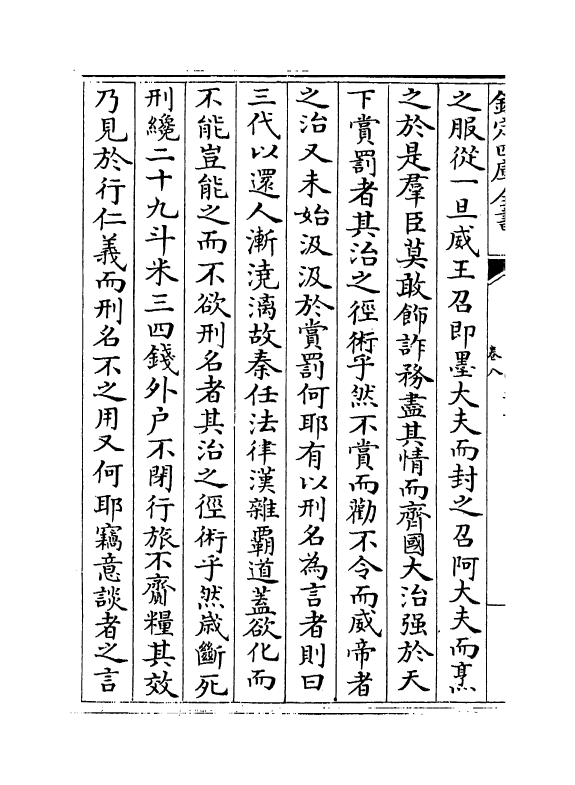 欽定四庫全書
卷八
之服從一旦威王召即墨大夫而封之召阿大夫而烹
之於是羣臣莫敢飾詐務盡其情而齊國大治强於天
下賞罰者其治之徑術乎然不賞而勸不令而威帝者
之治又未始汲汲於賞罰何耶有以刑名為言者則曰
三代以還人漸澆漓故秦任法律漢雜霸道蓋欲化而
不能豈能之而不欲刑名者其治之徑術乎然歲斷死
刑纔二十九斗米三四錢外户不閉行旅不齎糧其效
乃見於行仁義而刑名不之用又何耶竊意談者之言